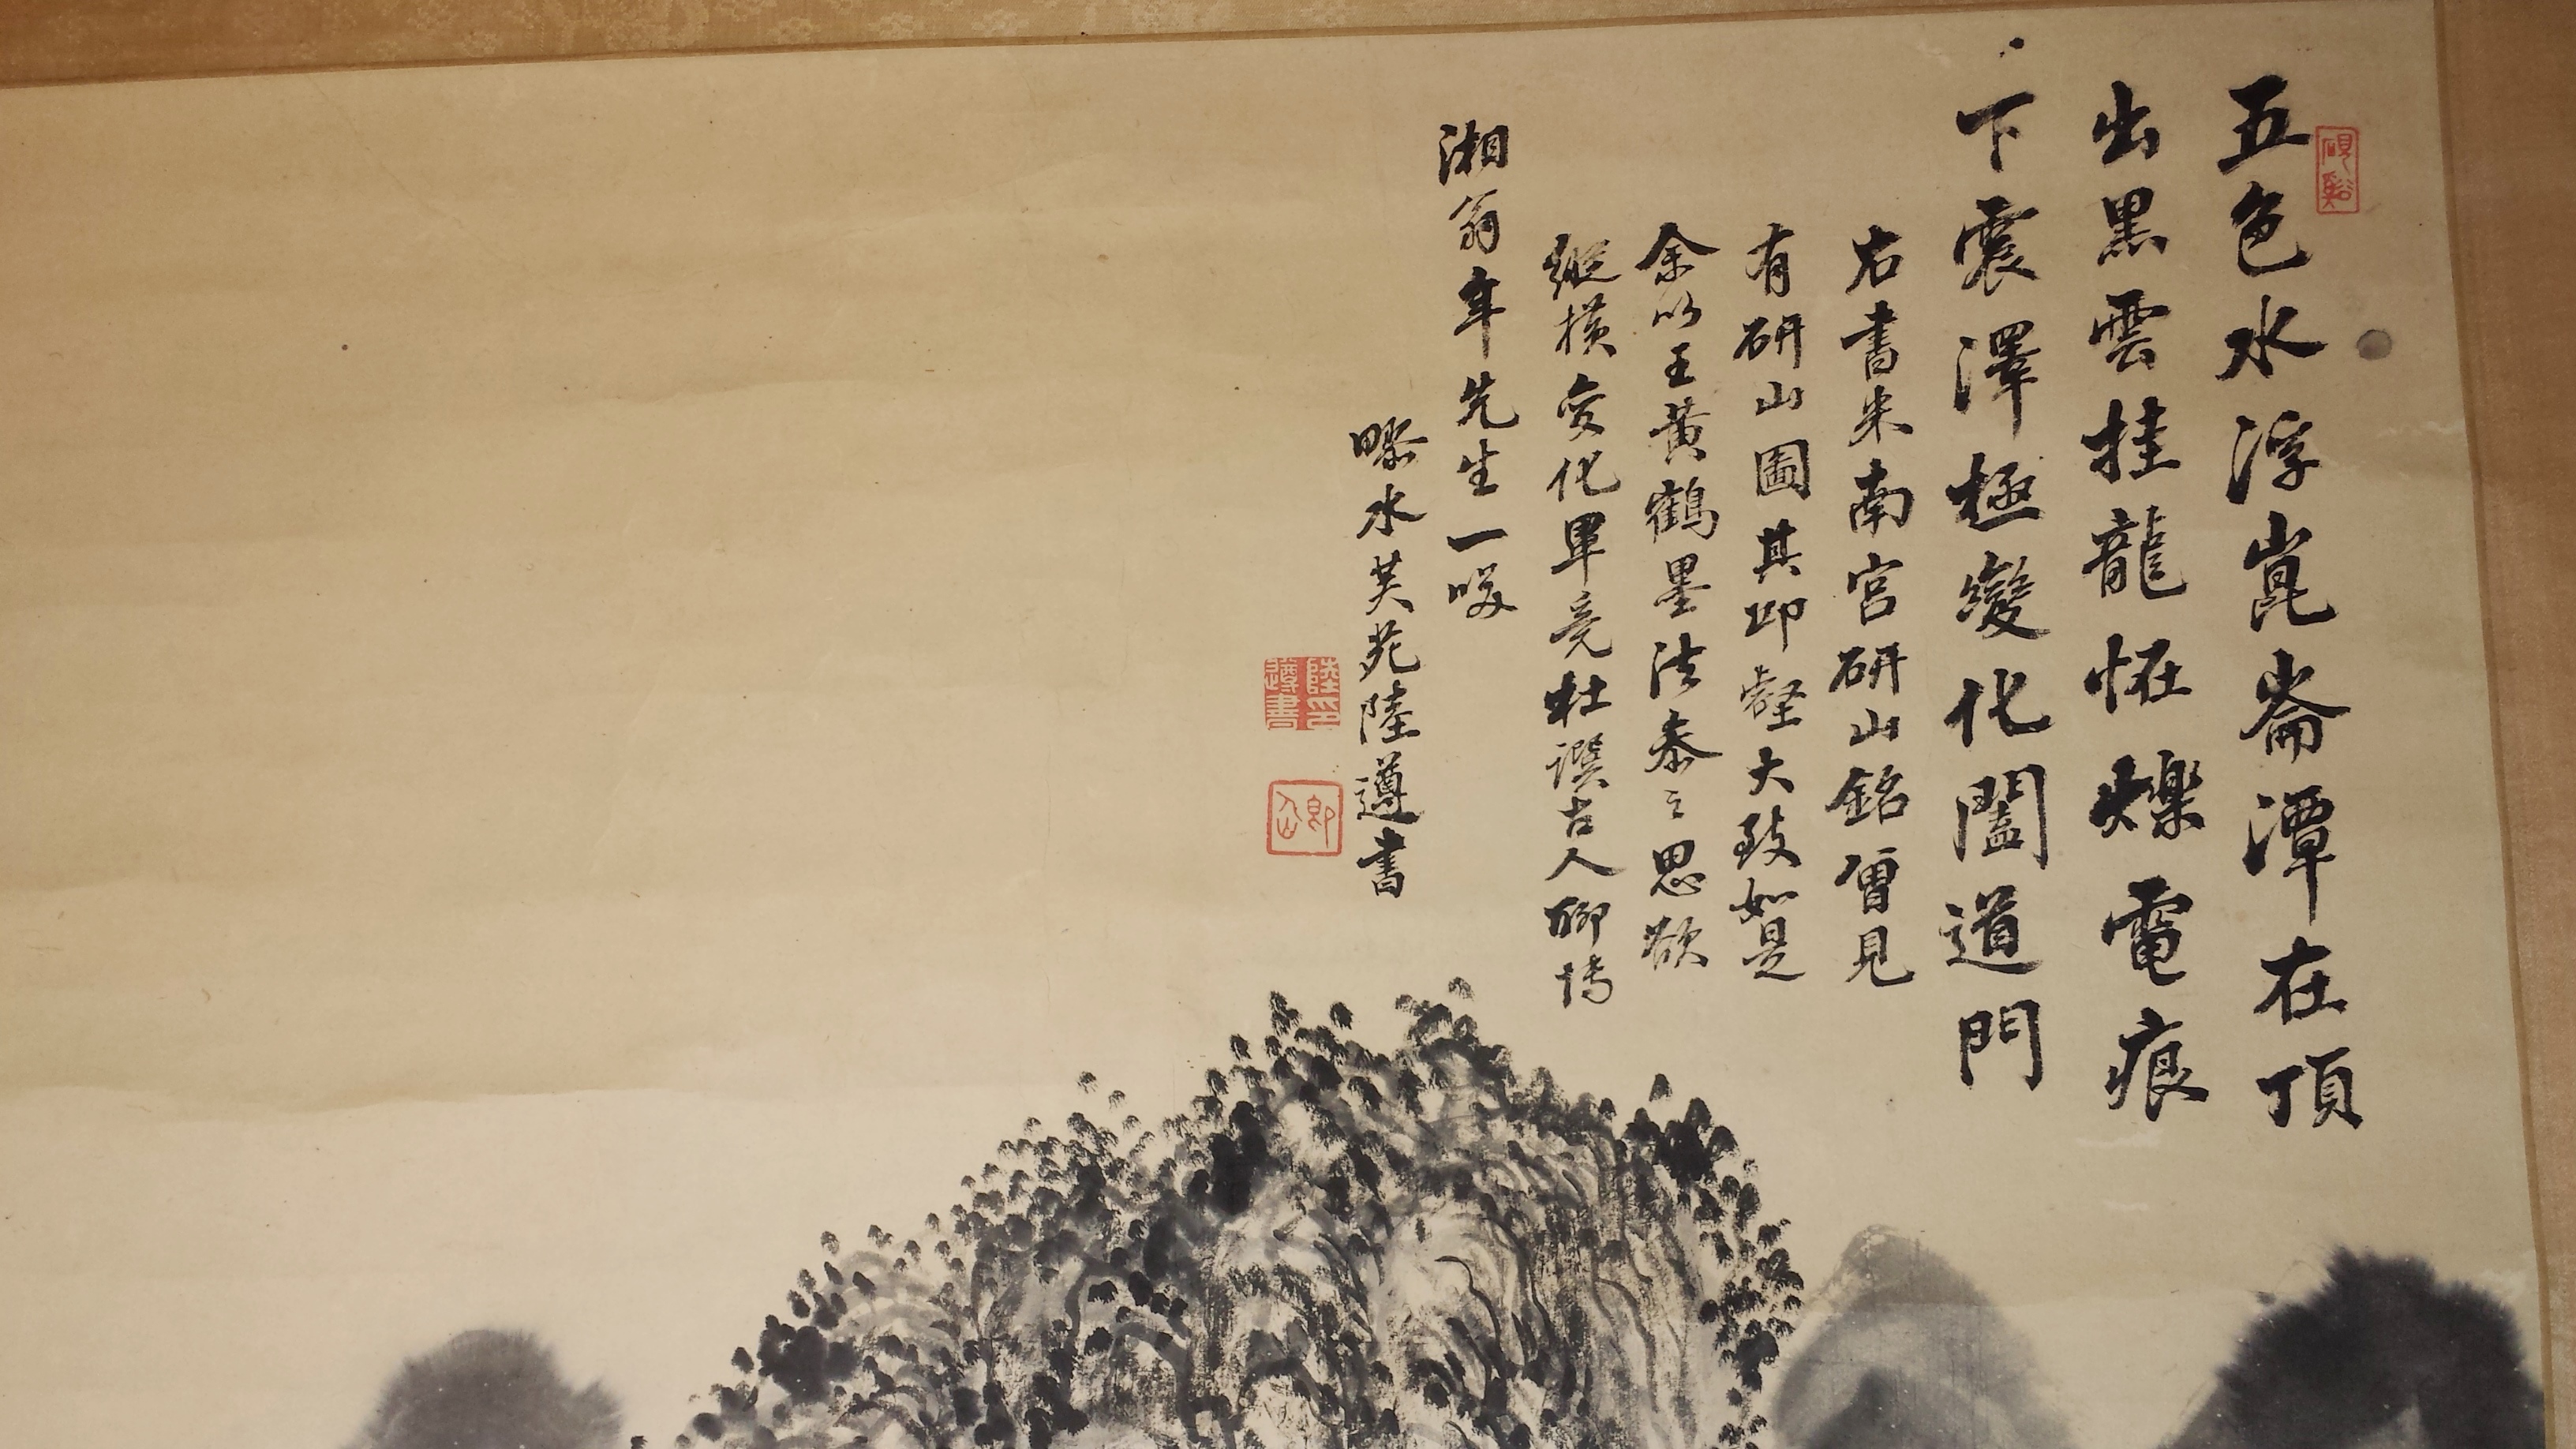 五色水浮崑崙潭在頂
出黑雲挂龍怪爍電痕
下震澤極變化闔道門
右書米南宮研山銘曾見
有研山圖其邱壑大致如是
余以王黃鶴墨法恭之思欲
縱橫變化畢竟杜譔古人聊博
湘翁年先生一噱
水芙苑陸遵書
陸遵書印